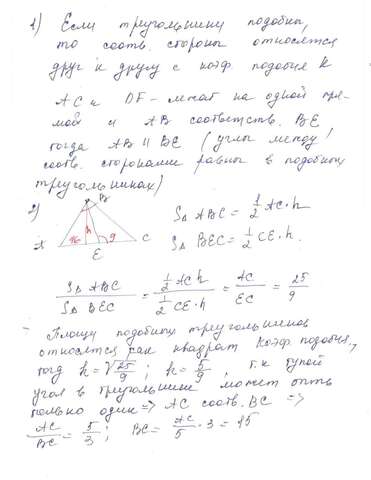 1) Если треугольники подобны,
то соотв. стороны относятся
друг к другу с коэф. подобия k
AC и DF - лежат на одной пря-
мой и AB соответств. BE
тогда AB || BE (углы между
соотв. сторонами равны в подобных
треугольниках)
2)
B
A 16 h 9 C
E
S∆ ABC = 1/2 AC·h
S∆ BEC = 1/2 CE·h.
S∆ ABC / S∆ BEC = 1/2 AC h / 1/2 CE·h = AC / EC = 25 / 9
Площи подобных треугольников
относятся как квадрат коэф. подобия,
тогд k = √25/9; k = 5/9, т.к тупой
угол в треугольнике может быть
только один => AC соотв. BC =>
AC / BC = 5 / 3; BC = AC / 5 · 3 = 15